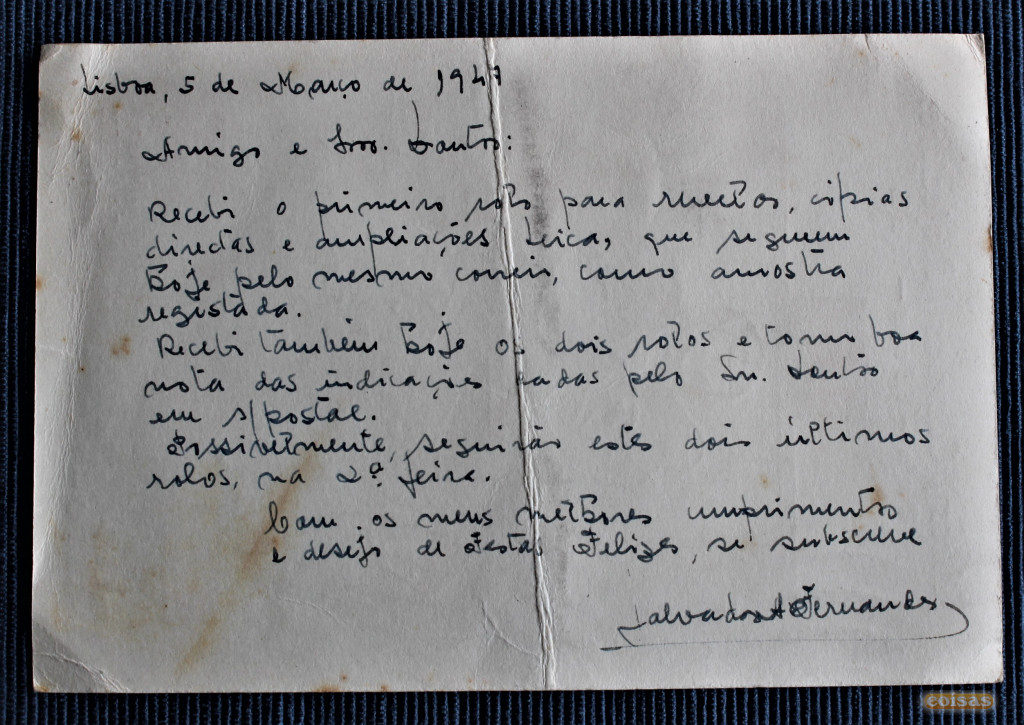 Lisboa, 5 de Março de 1947
Amigo e Snr. Santos:
Recebi o primeiro rolo para revelar, cópias
directas e ampliações Leica, que seguem
hoje pelo mesmo correio, como amostra
registada.
Recebi também hoje os dois rolos e tomo boa
nota das indicações dadas pelo Sr. Santos
em s/postal.
Possivelmente, seguirão estes dois últimos
rolos, na 2ª. feira.
Com os meus melhores cumprimentos
e desejo de Festas Felizes, se subscreve
Salvador A Fernandes
coisas